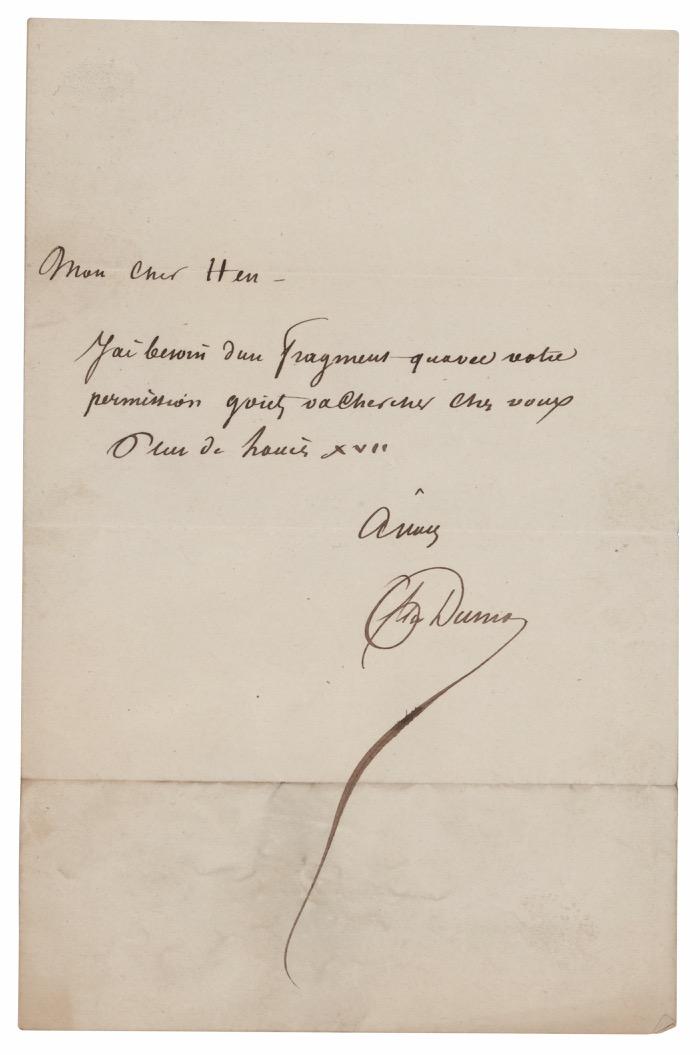 Mon cher Hen –
J'ai besoin dun Fragment quavec votre
permission va Chercher Chez vous
de Louis XVII
A vous
Alex Dumas